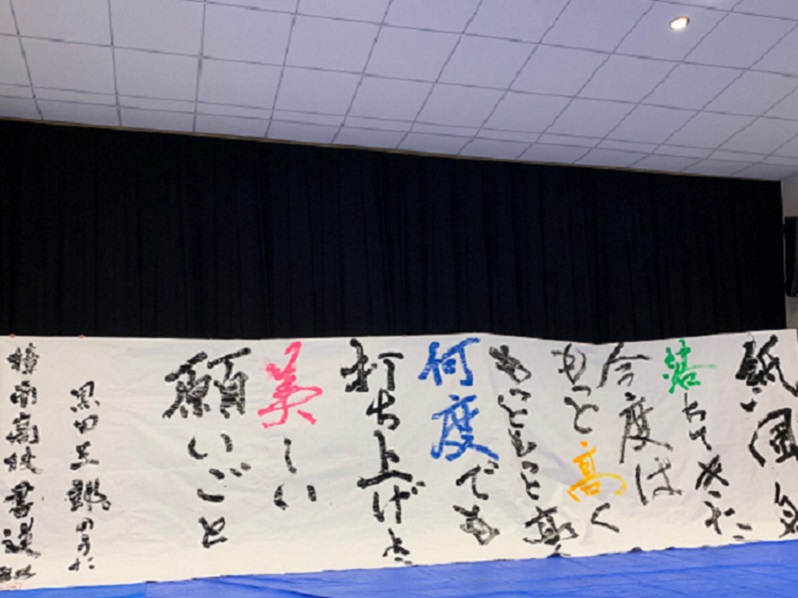 紙風船
落ちてきた
今度は
もっと高く
もっともっと高く
何度でも
打ち上げよう
美しい
願いごと
黒田三郎のうた
樟南高校書道部